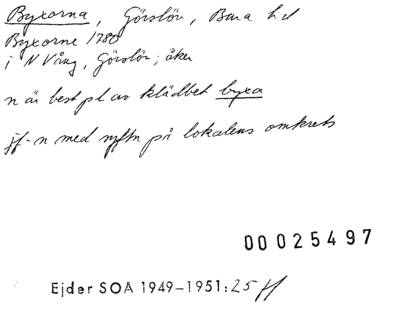 Byxorna, Görslöv, Bara hd
Byxorne 1780
i N Vång, Görslöv; åker
n är best pl av klädbet byxa
jf-n med syftn på lokalens omkrets
00025497
Ejder SOA 1949-1951:25